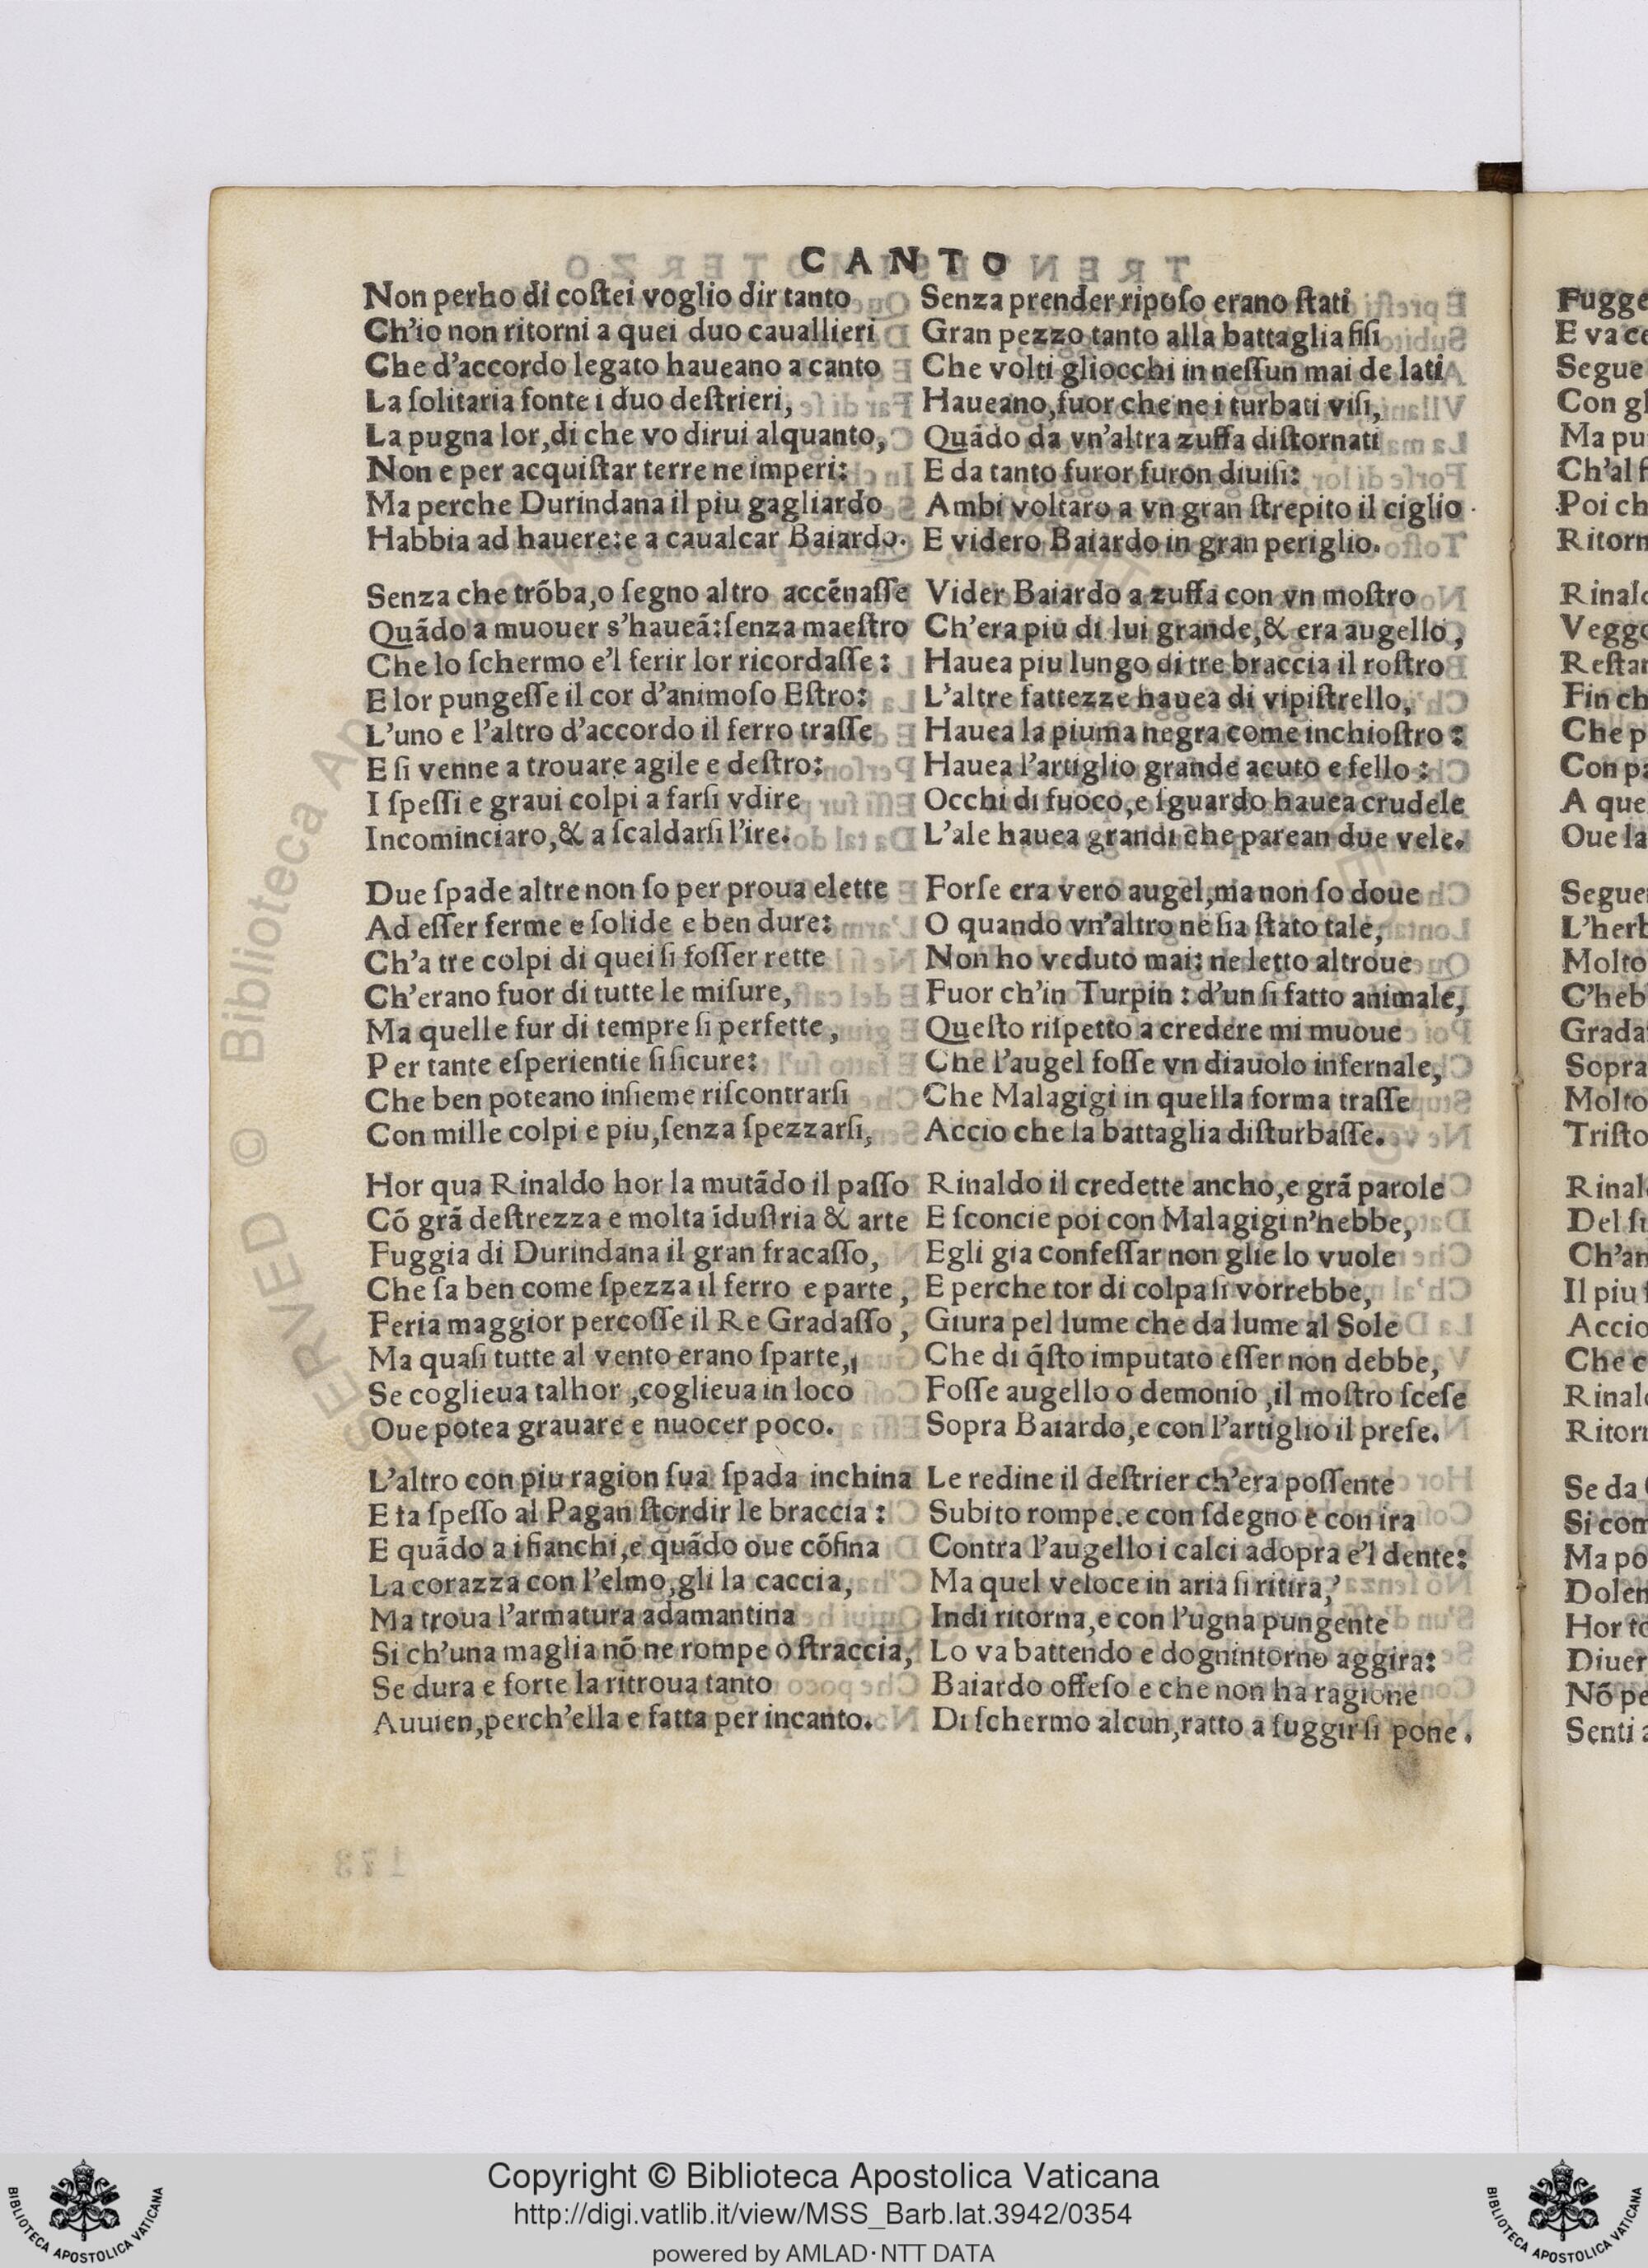 CANTO
Non perho di coſtei voglio dir tanto
Ch'io non ritorni a quei duo cauallieri
Che d'accordo legato haueano a canto
La ſolitaria fonte i duo deſtrieri,
La pugna lor,di che vo dirui alquanto,
Non e per acquiſtar terre ne imperi:
Ma perche Durindana il piu gagliardo
Habbia ad hauere:e a caualcar Baiardo.
Senza che trõba,o ſegno altro accẽnaſſe
Quãdo a muouer s'haueã:ſenza maeſtro
Che lo ſchermo e'l ferir lor ricordaſſe:
E lor pungeſſe il cor d'animoſo Eſtro:
L'uno e l'altro d'accordo il ferro traſſe
E ſi venne a trouare agile e deſtro:
I ſpeſſi e graui colpi a farſi vdire
Incominciaro,& a ſcaldarſi l'ire.
Due ſpade altre non ſo per proua elette
Ad eſſer ferme e ſolide e ben dure:
Ch'a tre colpi di quei ſi foſſer rette
Ch'erano fuor di tutte le miſure,
Ma quelle fur di tempre ſi perfette,
Per tante eſperientie ſi ſicure:
Che ben poteano inſieme riſcontrarſi
Con mille colpi e piu,ſenza ſpezzarſi,
Hor qua Rinaldo hor la mutãdo il paſſo
Cõ grã deſtrezza e molta ĩduſtria & arte
Fuggia di Durindana il gran fracaſſo,
Che ſa ben come ſpezza il ferro e parte,
Feria maggior percoſſe il Re Gradaſſo,
Ma quaſi tutte al vento erano ſparte,
Se coglieua talhor,coglieua in loco
Oue potea grauare e nuocer poco.
L'altro con piu ragion ſua ſpada inchina
E fa ſpeſſo al Pagan ſtordir le braccia:
E quãdo a i fianchi,e quãdo oue cõfina
La corazza con l'elmo,gli la caccia,
Ma troua l'armatura adamantina
Si ch'una maglia nõ ne rompe o ſtraccia,
Se dura e forte la ritroua tanto
Auuien,perch'ella e fatta per incanto.
Senza prender ripoſo erano ſtati
Gran pezzo tanto alla battaglia fiſi
Che volti gliocchi in neſſun mai de lati
Haueano,fuor che ne i turbati viſi,
Quãdo da vn'altra zuffa diſtornati
E da tanto furor furon diuiſi:
Ambi voltaro a vn gran ſtrepito il ciglio
E videro Baiardo in gran periglio.
Vider Baiardo a zuffa con vn moſtro
Ch'era piu di lui grande,& era augello,
Hauea piu lungo di tre braccia il roſtro
L'altre fattezze hauea di vipiſtrello,
Hauea la piuma negra come inchioſtro:
Hauea l'artiglio grande acuto e fello:
Occhi di fuoco,e ſguardo hauea crudele
L'ale hauea grandi che parean due vele.
Forſe era vero augel,ma non ſo doue
O quando vn'altro ne ſia ſtato tale,
Non ho veduto mai: ne letto altroue
Fuor ch'in Turpin: d'un ſi fatto animale,
Queſto riſpetto a credere mi muoue
Che l'augel foſſe vn diauolo infernale,
Che Malagigi in quella forma traſſe
Accio che la battaglia diſturbaſſe.
Rinaldo il credette ancho,e grã parole
E ſconcie poi con Malagigi n'hebbe,
Egli gia confeſſar non glie lo vuole
E perche tor di colpa ſi vorrebbe,
Giura pel lume che da lume al Sole
Che di q̃ſto imputato eſſer non debbe,
Foſſe augello o demonio,il moſtro ſceſe
Sopra Baiardo,e con l'artiglio il preſe.
Le redine il deſtrier ch'era poſſente
Subito rompe.e con ſdegno e con ira
Contra l'augello i calci adopra e'l dente:
Ma quel veloce in aria ſi ritira,
Indi ritorna,e con l'ugna pungente
Lo va battendo e dognintorno aggira:
Baiardo offeſo e che non ha ragione
Di ſchermo alcun,ratto a fuggir ſi pone.
Fugge
E va ce
Segue
Con gl
Ma pu
Ch'al f
Poi ch
Ritorn
Rinald
Veggo
Reſtar
Fin ch
Che p
Con pa
A que
Oue la
Segue
L'herb
Molto
C'heb
Gradaſ
Sopra
Molto
Triſto
Rinal
Del ſu
Ch'an
Il piu
Accio
Che c
Rinal
Ritor
Se da
Si com
Ma po
Dolen
Hor to
Diuer
Nõ pe
Senti a
© Biblioteca Ap
RVED
Copyright © Biblioteca Apostolica Vaticana
http://digi.vatlib.it/view/MSS_Barb.lat.3942/0354
powered by AMLAD·NTT DATA
BIBLIOTECA APOSTOLICA VATICANA
BIBLIOTECA APOSTOLICA VATICANA